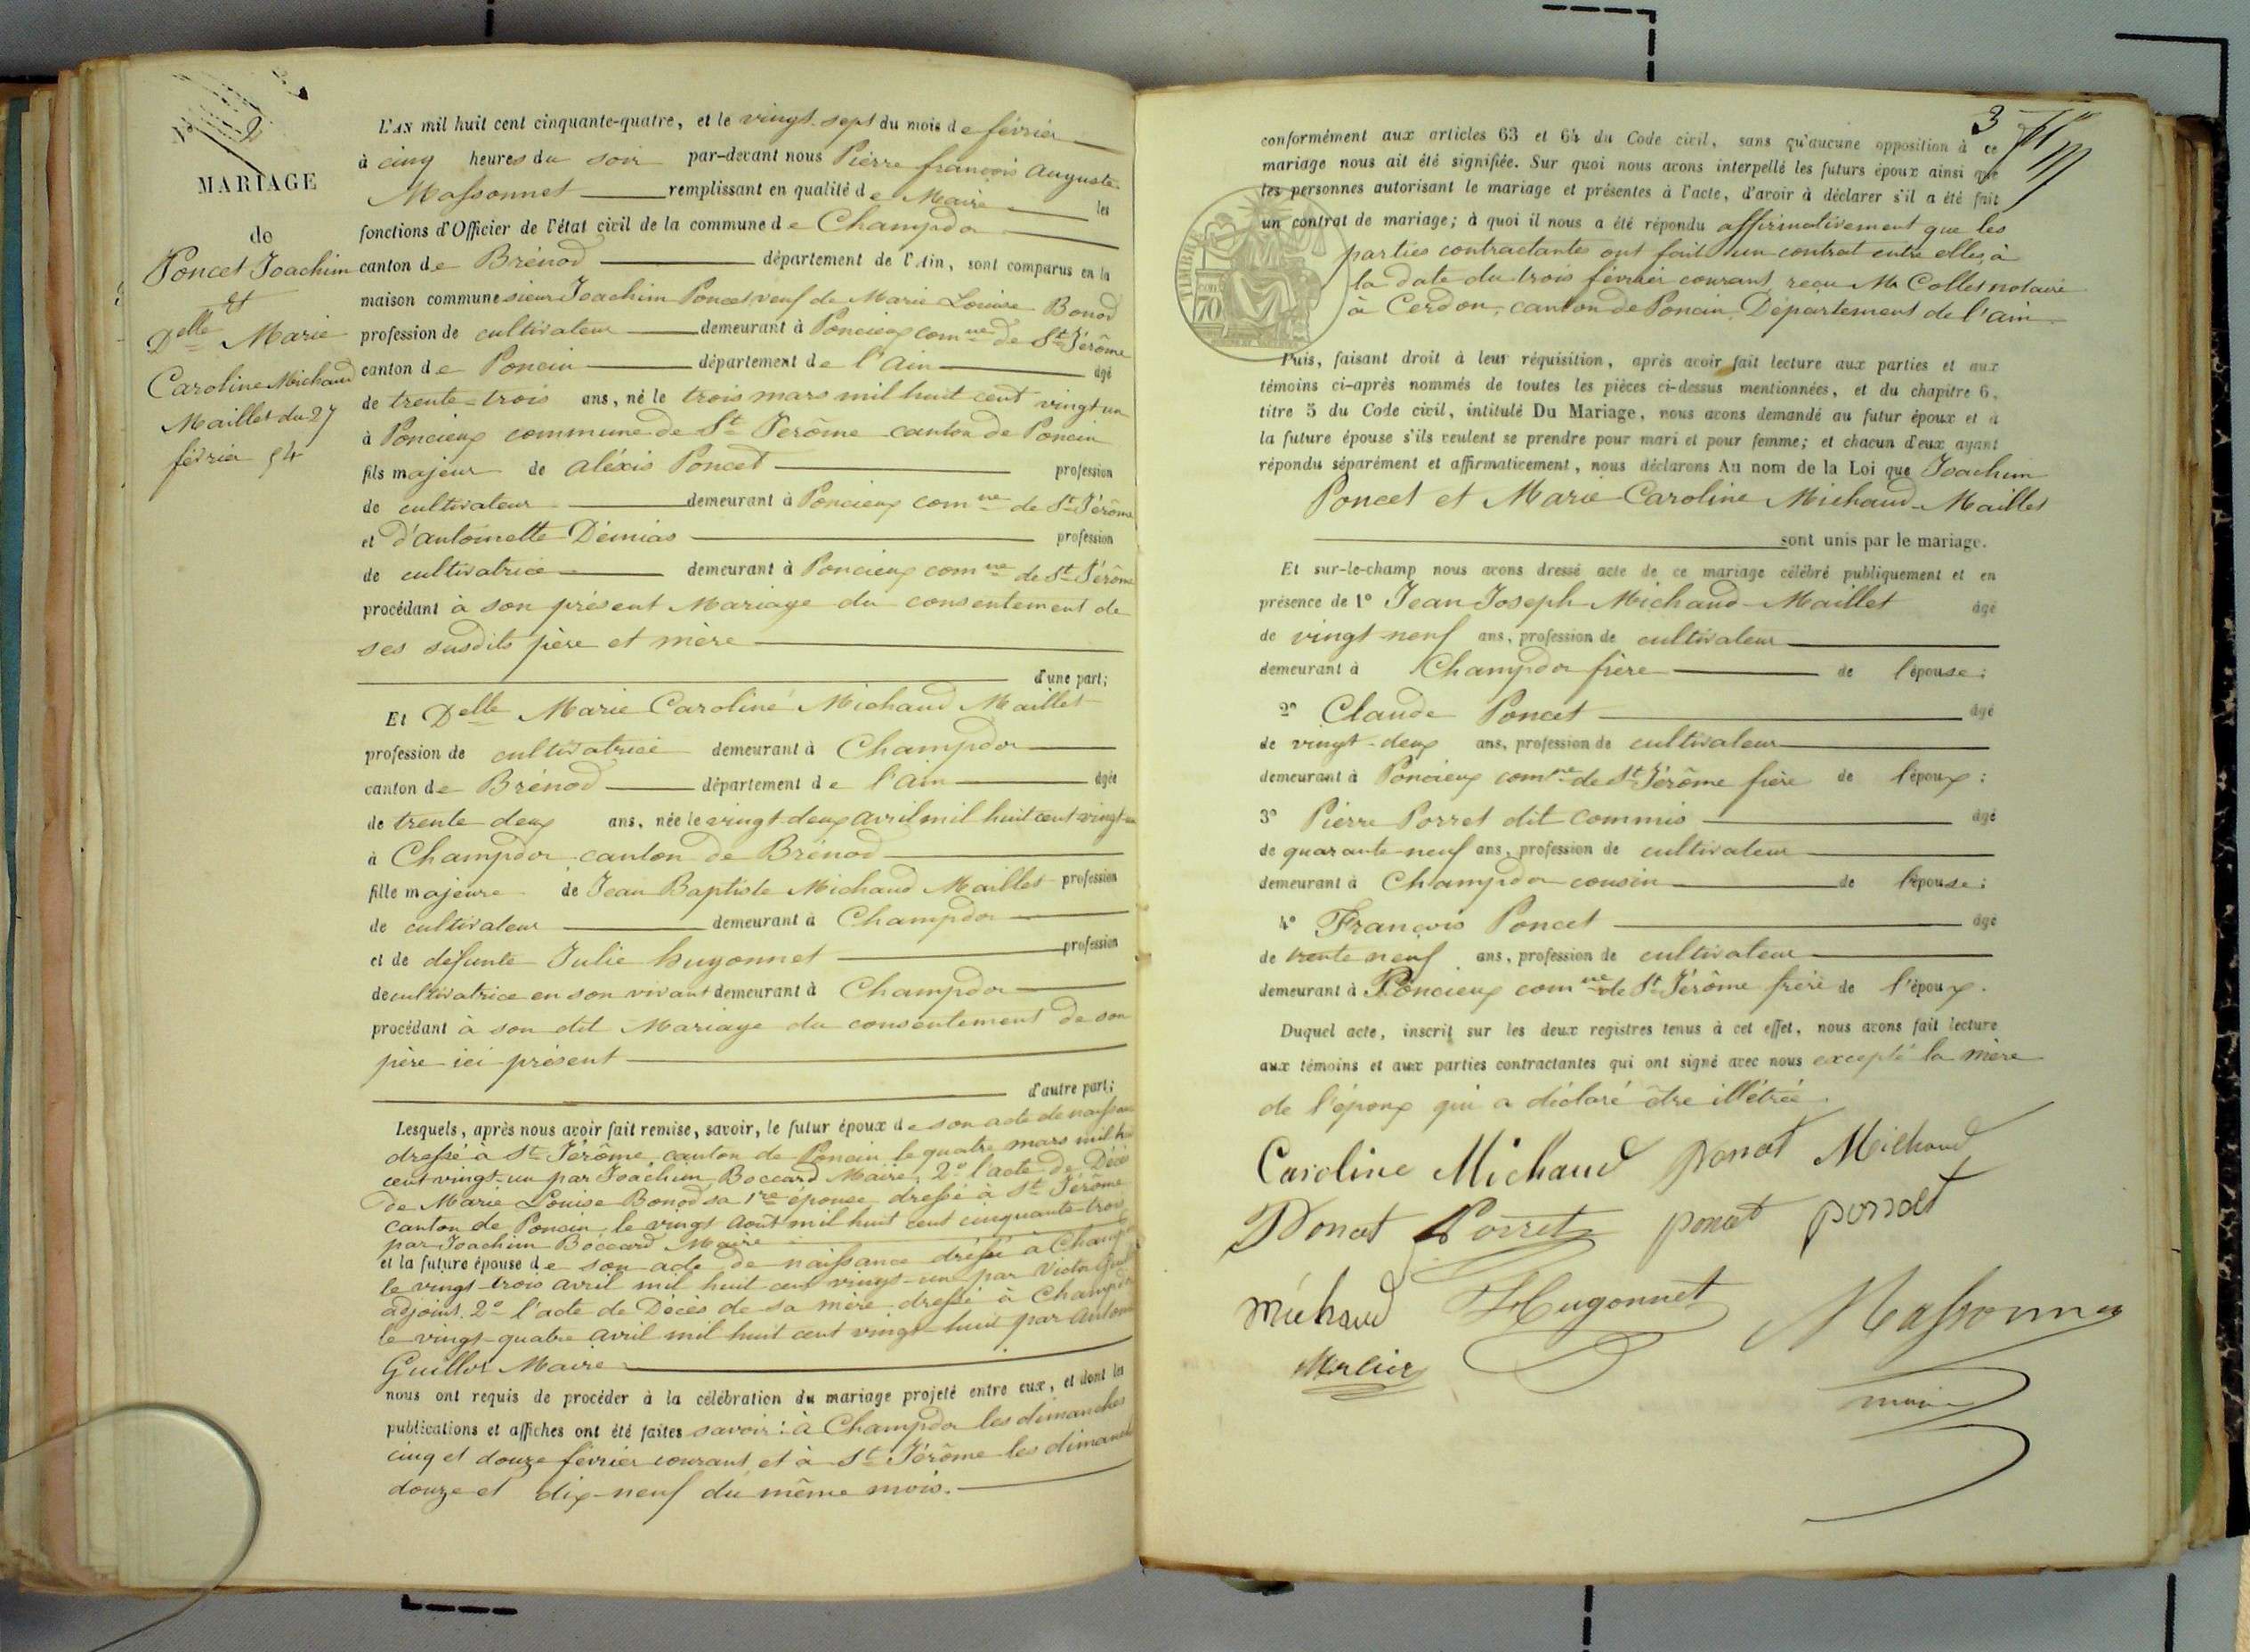 N° 2
MARIAGE
de
Poncet Joachim
et
Delle Marie
Caroline Michaud
Maillet du 27
février 54
L'AN mil huit cent cinquante-quatre, et le vingt-sept du mois de février
à cinq heures du soir par-devant nous Pierre françois Auguste
Massonnet remplissant en qualité de Maire les
fonctions d'Officier de l'état civil de la commune de Champdor
canton de Brénod département de l'Ain, sont comparus en la
maison commune sieur Joachim Poncet, veuf de Marie Louise Bonod
profession de cultivateur demeurant à Poncieux comne de St Jérôme
canton de Poncin département de l'Ain âgé
de trente-trois ans, né le trois mars mil huit cent vingt un
à Poncieux commune de St Jérôme canton de Poncin
fils majeur de aléxis Poncet profession
de cultivateur demeurant à Poncieux comne de St Jérôme
et d'antoinette Démias profession
de cultivatrice demeurant à Poncieux comne de St Jérôme
procédant à son présent Mariage du consentement de
ses susdits père et mère
d'une part;
Et Delle Marie Caroline Michaud Maillet
profession de cultivatrice demeurant à Champdor
canton de Brénod département de l'Ain âgée
de trente deux ans, née le vingt deux avril mil huit cent vingt un
à Champdor canton de Brénod
fille majeure de Jean Baptiste Michaud Maillet profession
de cultivateur demeurant à Champdor
et de defunte Julie hugonnet profession
de cultivatrice en son vivant demeurant à Champdor
procédant à son dit Mariage du consentement de son
père ici présent
d'autre part;
Lesquels, après nous avoir fait remise, savoir, le futur époux de son acte de naissance
dressé à St Jérôme canton de Poncin le quatre mars mil huit
cent vingt-un par Joachim Boccard Maire, 2° l'acte de Décès
de Marie Louise Bonod sa 1re épouse dressé à St Jérôme
canton de Poncin, le vingt Août mil huit cent cinquante-trois
par Joachim Boccard Maire
et la future épouse de son acte de naissance dréssé à Champdor
le vingt-trois avril mil huit cent vingt-un par Victor
adjoint 2° l'acte de Décès de sa mère dressé à Champdor
le vingt-quatre avril mil huit cent vingt-huit par Antoine
Guillot Maire
nous ont requis de procéder à la célébration du mariage projeté entre eux, et dont les
publications et affiches ont été faites savoir: à Champdor les dimanches
cinq et douze février courant et à St Jérôme les dimanches
douze et dix-neuf du même mois.
3
conformément aux articles 63 et 64 du Code civil, sans qu'aucune opposition à ce
mariage nous ait été signifiée. Sur quoi nous avons interpellé les futurs époux ainsi que
les personnes autorisant le mariage et présentes à l'acte, d'avoir à déclarer s'il a été fait
un contrat de mariage; à quoi il nous a été répondu affirmativement que les
parties contractantes ont fait un contrat entre elles, à
la date du trois février courant, reçu Me Collet notaire
à Cerdon, canton de Poncin, Département de l'ain
TIMBRE
70
Puis, faisant droit à leur réquisition, après avoir fait lecture aux parties et aux
témoins ci-après nommés de toutes les pièces ci-dessus mentionnées, et du chapitre 6,
titre 5 du Code civil, intitulé Du Mariage, nous avons demandé au futur époux et à
la future épouse s'ils veulent se prendre pour mari et pour femme; et chacun d'eux ayant
répondu séparément et affirmativement, nous déclarons Au nom de la Loi que Joachim
Poncet et Marie-Caroline Michaud-Maillet
sont unis par le mariage.
Et sur-le-champ nous avons dressé acte de ce mariage célébré publiquement et en
présence de 1° Jean Joseph Michaud-Maillet âgé
de vingt-neuf ans, profession de cultivateur
demeurant à Champdor frère de l'épouse;
2° Claude Poncet âgé
de vingt-deux ans, profession de cultivateur
demeurant à Poncieux comne de St Jérôme frère de l'époux;
3° Pierre Porret dit commis âgé
de quarante-neuf ans, profession de cultivateur
demeurant à Champdor cousin de l'épouse;
4° François Poncet âgé
de trente neuf ans, profession de cultivateur
demeurant à Poncieux comne de St Jérôme frère de l'époux.
Duquel acte, inscrit sur les deux registres tenus à cet effet, nous avons fait lecture
aux témoins et aux parties contractantes qui ont signé avec nous excepté la mère
de l'époux qui a déclaré être illétrée.
Caroline Michaud poncet Michaud
Poncet Porret poncet poncet
Michaud Hugonnet Massonnet
Mercier maire